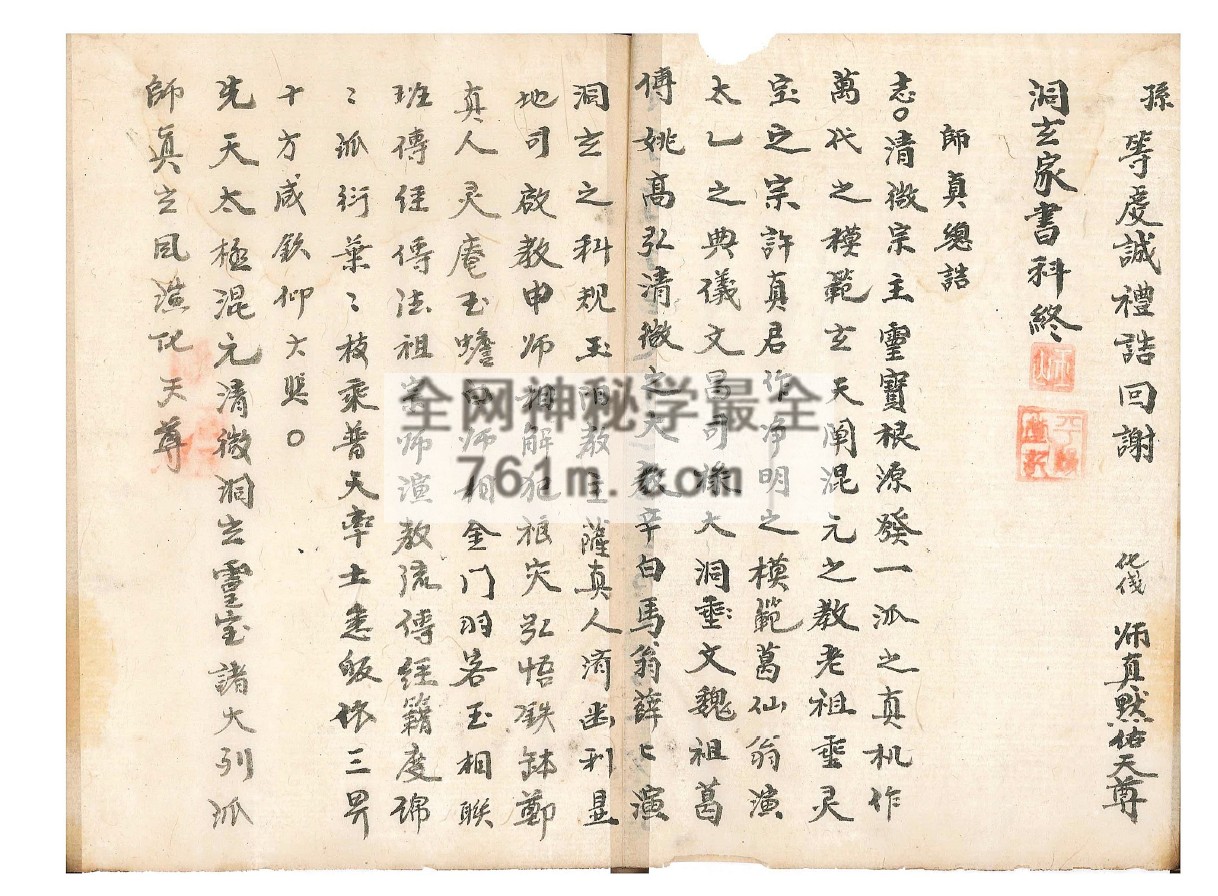 孫等虔誠禮誥回謝 化伐 师真默佑天尊
洞玄家書科終
師真總誥
志○清微宗主靈寶根源發一派之真机作
萬代之模範玄天闡混元之教老祖垂灵
宝之宗許真君作净明之模範葛仙翁演
太乙之典儀文昌司祿大洞垂文魏祖葛
傳姚高弘清微之大教辛白馬翁薛〻演
洞玄之科规玉雨教主薩真人濟幽利显
地司啟教申师相解犯禳灾弘悟铁缽鄭
真人灵庵玉蟾白师相金门羽客玉相聯
班傳经傳法祖嘗师演教流傳经籍度
〻派衍葉〻枝乘普天率土悉皈依三界
十方咸欽仰大思○
先天太極混元清微洞玄靈宝諸大列派
師真玄风演化天尊
全网神秘学最全
761m.com